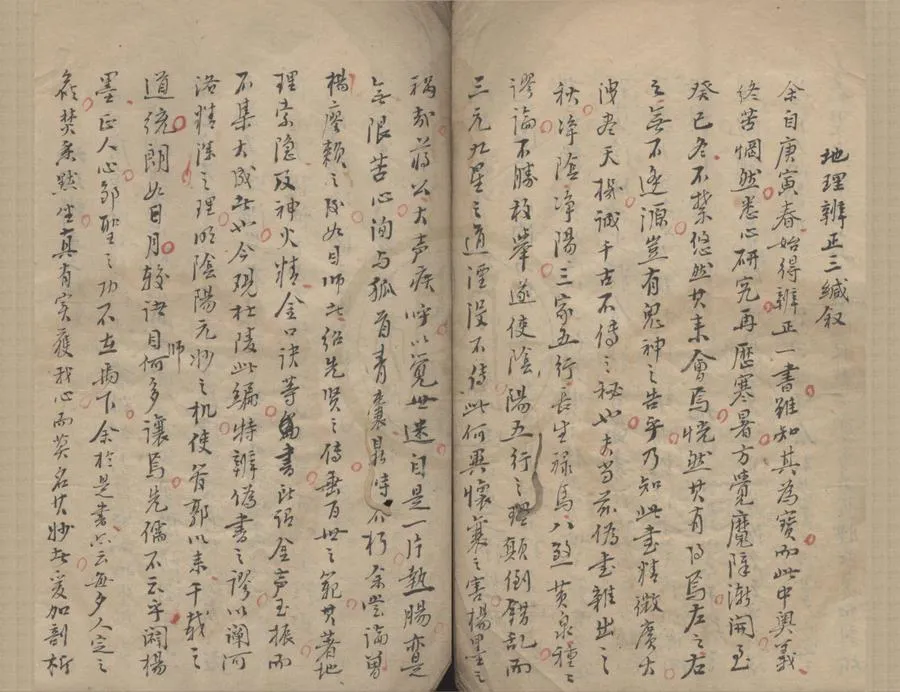 地理辨正三緘叙
余自庚寅春始得辨正一書雖知其為寶而此中奧義
終苦惘然悉心研究再歷寒暑方覺魔障漸開至
癸巳冬不禁悠然其来會焉恍然其有得焉左之右
之無不逢源豈有鬼神之告乎乃知此書精微廣大
洩盡天機誠千古不傳之秘也夫當兹偽書雜出之
秋净陰净陽三家五行長生禄馬八煞黄泉種種
謬論不勝枚舉遂使陰陽五行之理顛倒錯亂而
三元九星之道湮没不传此何異懷襄之害楊墨之
禍哉蒋公大声疾呼以覚世迷自是一片熱腸亦是
無限苦心洵与狐首青囊昆時不朽余嘗論曾
楊廖頼之後如目师者绍先贤之傳垂百世之範其著地
理索隐及神火精金口诀等書所谓金声玉振而
不集大成者也今观杜陵此编特辨偽書之謬以阐河
洛精深之理明陰陽元妙之机使管郭以来千载之
道统朗如日月較诸目师何多讓焉先儒不云乎闢楊
墨正人心邹聖之功不在禹下余於是書亦云每夕人定之
後焚香默坐真有实獲我心而莫名其妙者爰加剖析